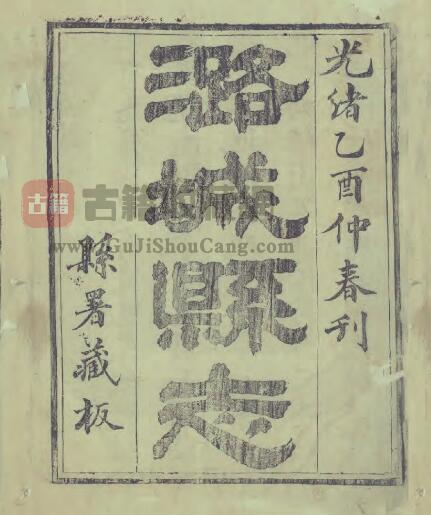 光緒乙酉仲春刊
潞城縣志
縣署藏板
古籍
古籍收藏網
www.GuJiShouCang.com